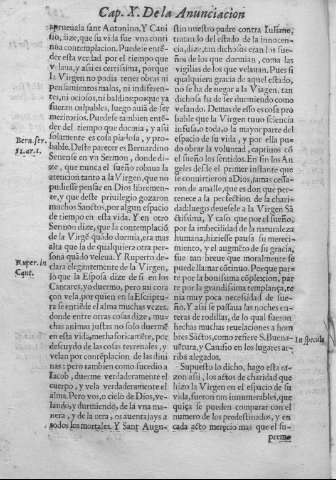 Cap. X. De la Anunciacion
aprueuala sant Antonino, Y Cani
sio, dize, que su vida fue vna conti
nua contemplacion. Puedese enté-
der esta verdad por el tiempo que
velaua, y assi es certissima, porque
la Virgen no podia tener obras ni
pensamientos malos, ni indiferen-
tes, ni ociosos, ni baldios porque ya
fueran culpables, luego auiã de ser
meritorios. Puedese tambien enté-
der del tiempo que dormia, y assi
solamente es cosa piadosa, y pro-
bable. Deste parecer es Bernardino
Bern. ser.
51. ar. 1.
Senense en vn Sermon, donde di-
ze, que nunca el sueño robaua la
atencion tanto a la Virgen, que no
pudiesse pensar en Dios libremen-
te, y que deste priuilegio gozaron
muchos Sanctos, por algun espacio
de tiempo en esta vida. Y en otro
Sermon dize, que la contemplació
de la Virgẽ quãdo dormia, era mas
alta que la de qualquiera otra per-
sona quãdo veleua. Y Ruperto de-
Ruper. in
Cant.
clara elegantemente de la Virgen,
lo que la Esposa dize de si en los
Cantares, yo duermo, pero mi cora
çon vela, por quien en la Escriptu-
ra se entiẽde el alma muchas vezes.
donde entre otras cosas dize, mu-
chas animas justas no solo duermẽ
en esta vida, methaforicamẽte, por
descuydo de las cosas terrenales, y
velan por contẽplacion de las diui
nas: pero tambien como sucedio a
Iacob, duerme verdaderamente el
cuerpo, y vela verdaderamente el
alma. Pero vos, o cielo de Dios, ve-
lando, y durmiendo, de la vna ma-
nera, y de la otra, os auentajays a
todos los mortales. Y Sant Augu-
stin nuestro padre contra Iuliano,
tratando del estado de la innocen-
cia, dize, tan dichosos eran los sue-
ños de los que dormian, como las
vigilias de los que velauan. Pues si
qualquiera gracia de aquel estado,
no se ha de negar a la Virgen, tan
dichosa ha de ser durmiendo como
velando. Demas de esto es cosa pro
bable que la Virgen tuuo sciencia
infusa, o toda, o la mayor parte del
espacio de su vida, y por ella pue
do obrar la voluntad, captiuos cõ
el sueño los sentidos. En fin los An
geles desde el primer instante que
se conuirtieron a Dios, jamas cessa-
ron de amalle, que es don que per-
tenece a la perfection de la chari-
dad: luego deuesele a la Virgen Sã
ctissima, Y caso que por el sueño,
por la imbecilidad de la naturaleza
humana, hiziesse pausa su mereci-
miento, y el augmẽto de su gracia,
fue tan breue que moralmente se
puede llamar cõtinuo. Porque par-
te por la bonissima cõplexion, par
te por la grandissima templança, te
nia muy poca necesidad de sue-
ño. Y assi se passaua las noches en-
teras de rodillas, de lo qual fueron
hechas muchas reuelaciones a hom
bres Sãctos, como refiere S. Buena-
In specula
uẽtura, y Canisio en los lugares ar-
riba alegados.
Supuesto lo dicho, hago esta ra-
zon assi, los actos de charidad que
hizo la Virgen en el espacio de su
vida, fueron tan innumerables, que
quiça se pueden comparar con el
numero de los predestinados, y en
cada acto merecio mas que el su-
premo